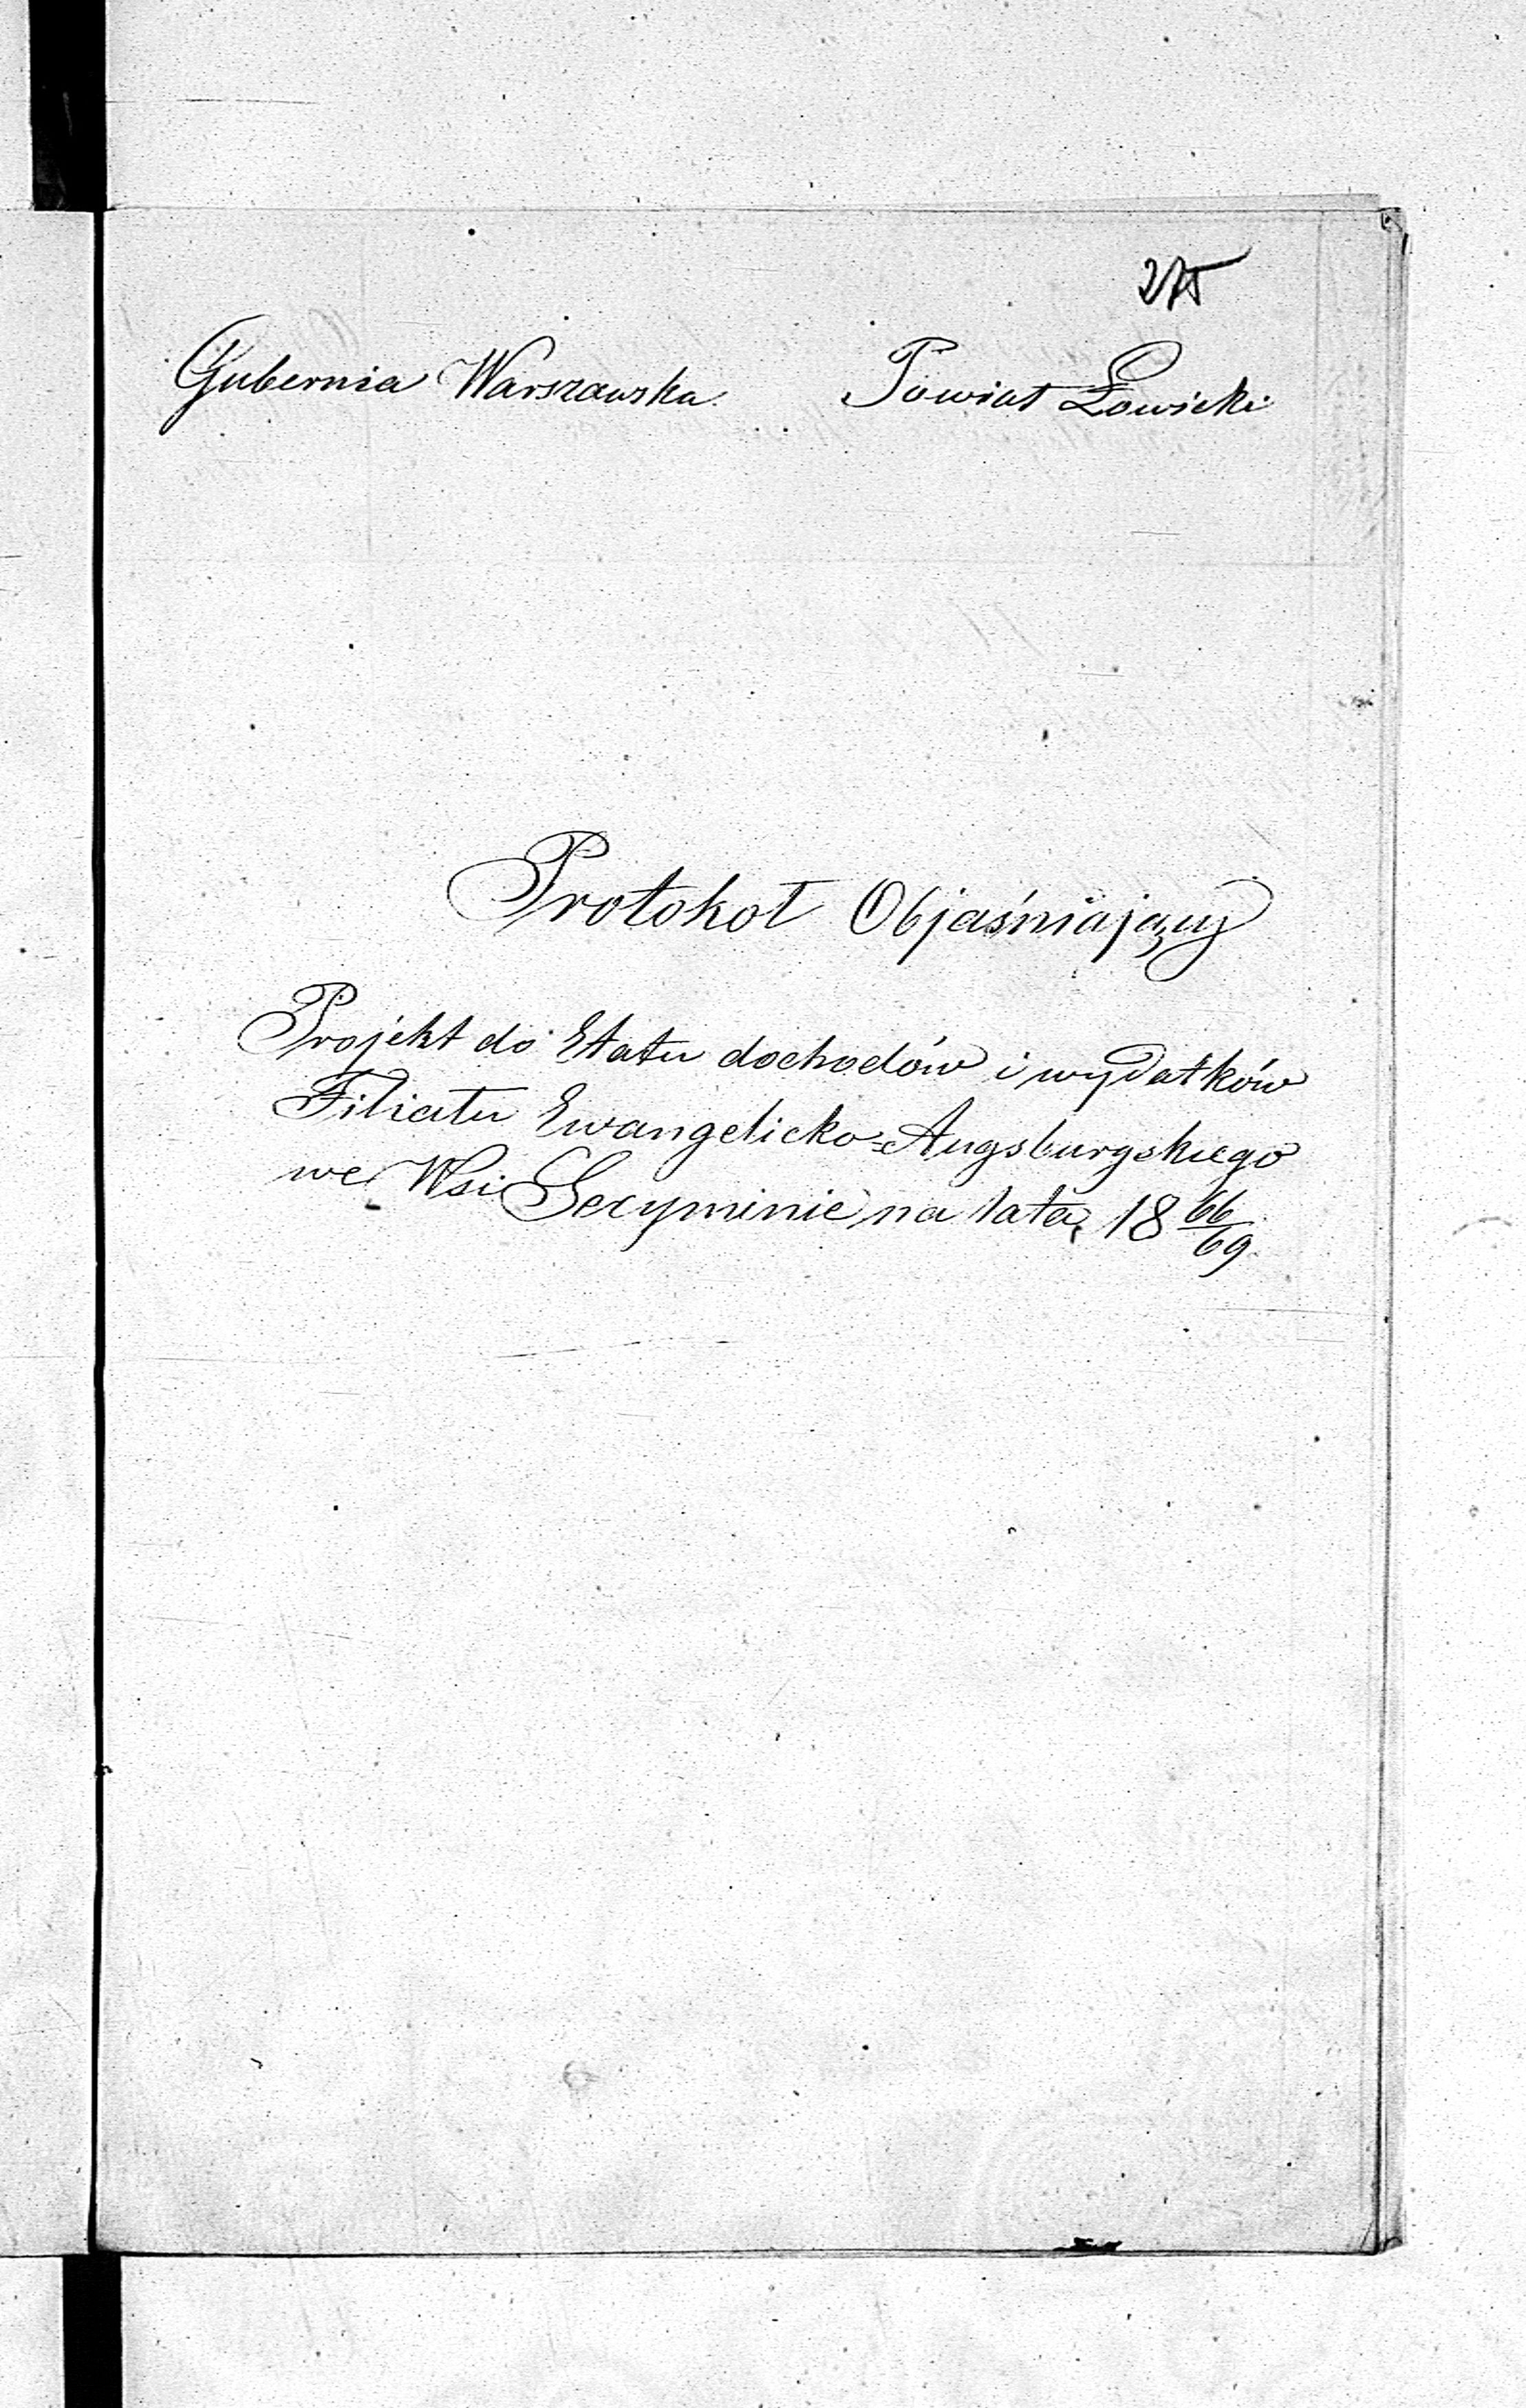 275
Gubernia Warszawska. Powiat Łowicki
Protokoł Objaśniający
Projekt do Etatu dochodów i wydatków
Filiatu Ewangelicko=Augsburgskiego
we Wsi Secyminie na lata 18 66/69.